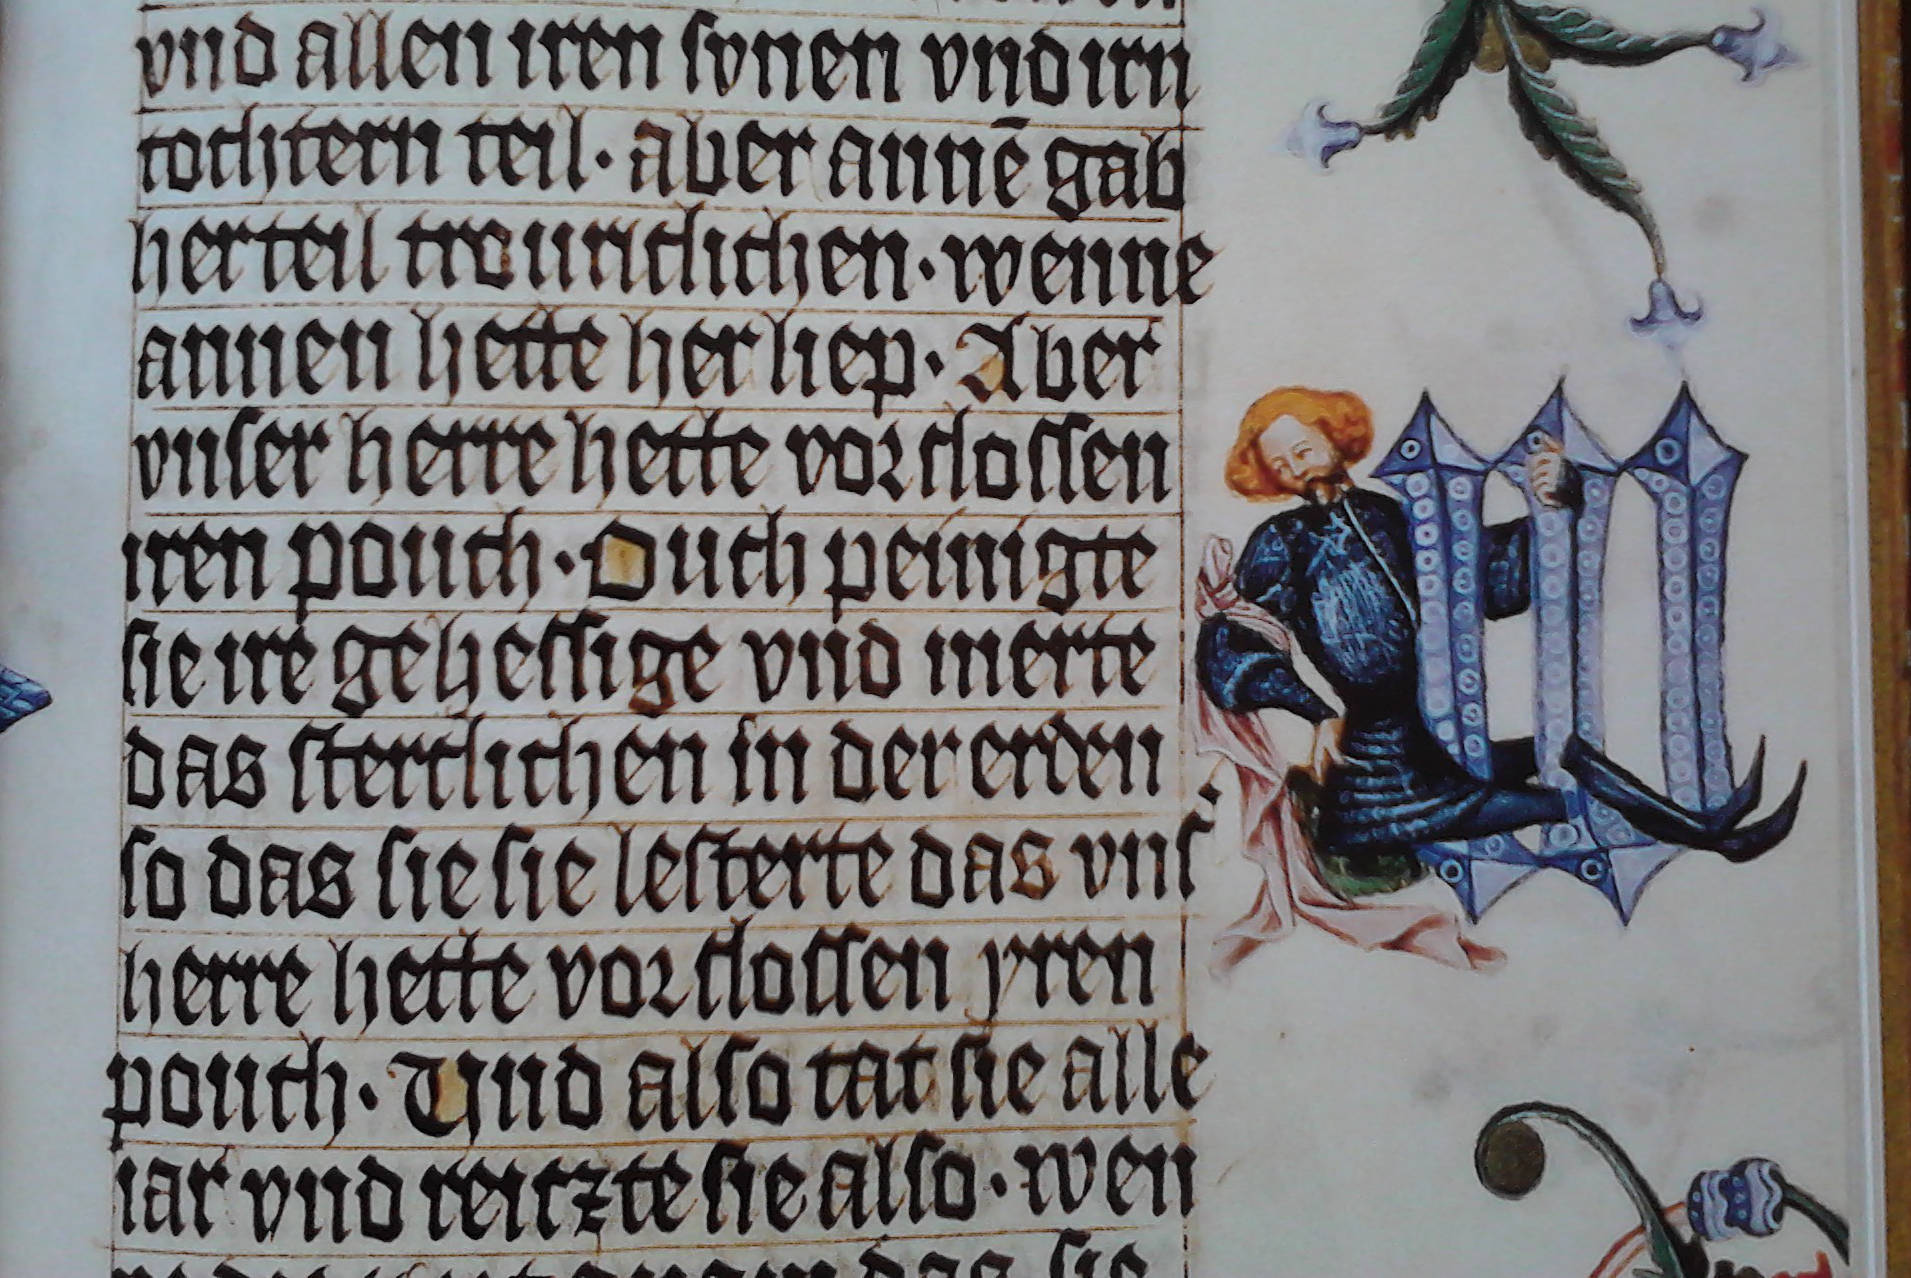 vnd allen iren synen vnd irn
tochtern teil · aber annē gab
her teil trouriclichen · wenne
annen hette her liep · Aber
vnser herre hette vorslossen
iren pouch · Ouch peinigte
sie ire gehessige vnd merte
das stertlichen in der erden
so das sie sie lesterte das vns
herre hette vorslossen yren
pouch · Vnd also tat sie alle
iar vnd reitzte sie also · wen
das sie